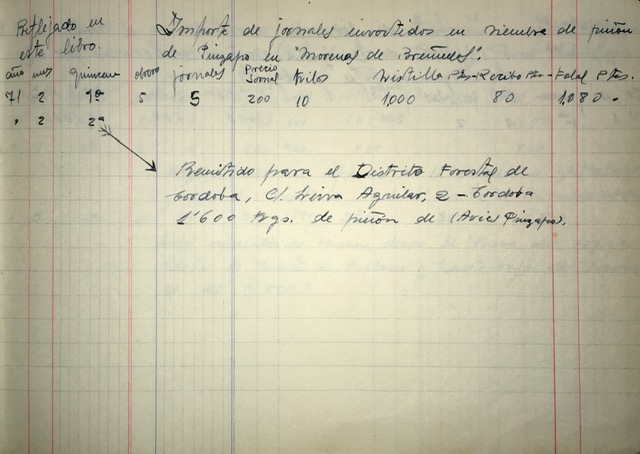 Reflejado en
este libro.
Importe de jornales invertidos en siembra de piñón
de Pinzapo en "Morenas de Breñudos".
año mes quincena obrero jornales Precio Jornal Kilos Pts.- Recibo Pts.- Total Pts.
71 2 1ª 5 5 200 10 1,000 80 1,080.-
" 2 2ª
Remitido para el Distrito Forestal de
Cordoba, C/. Leiva Aguilar, 2 - Cordoba
1'600 Kgs. de piñón de (Avie Pinzapo).